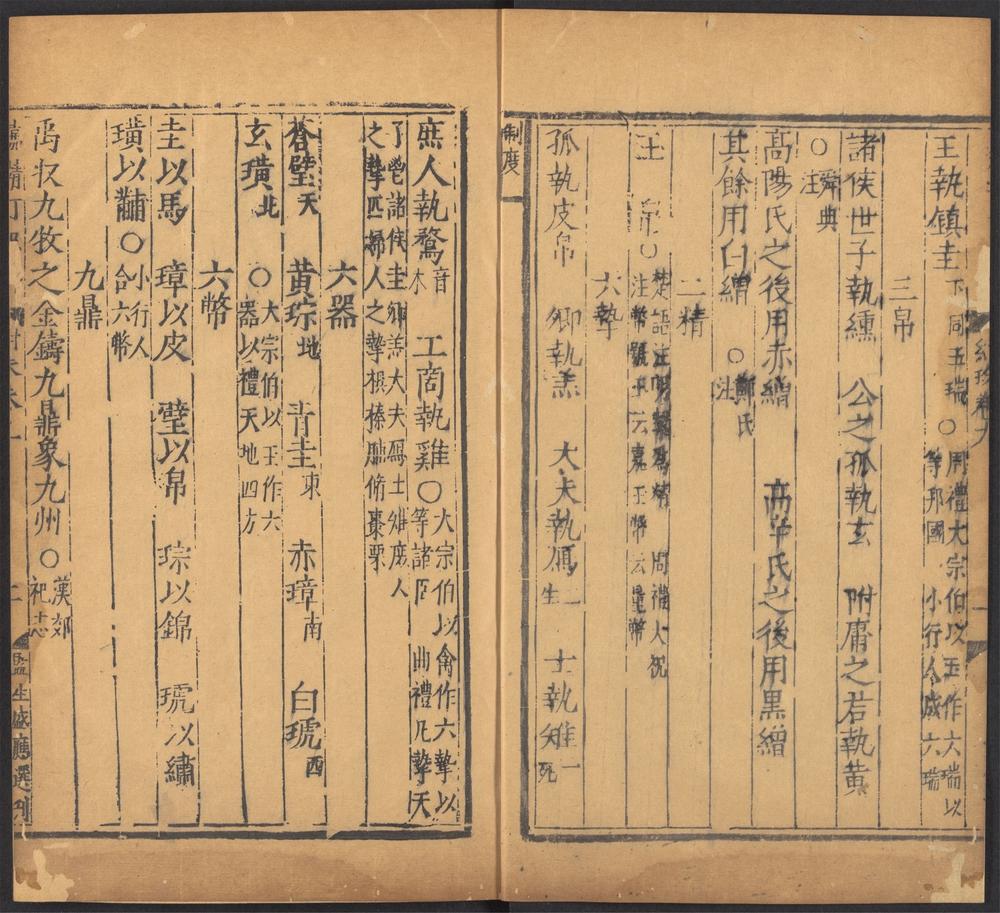 王執鎮圭 下同五瑞 ○周禮大宗伯以玉作六瑞以等邦國 小行人成六瑞
三帛
諸侯世子執纁 公之孤執玄 附庸之君執黃
○舜典注
高陽氏之後用赤繒 高辛氏之後用黑繒
其餘用白繒 ○鄭氏注
二精
玉 帛○楚語注明潔為精 周禮大祝注幣號玉云嘉玉幣云量幣
六摯
孤執皮帛 卿執羔 大夫執鴈 二生 士執雉 一死
制度
庶人執鶩 音木 工商執雞○大宗伯以禽作六摯以等諸臣 曲禮凡摯天
子鬯諸侯圭卿羔大夫鴈士雉庶人之摯匹婦人之摯椇榛脯脩棗栗
六器
蒼璧 天 黃琮 地 青圭 東 赤璋 南 白琥 西
玄璜 北 ○大宗伯以玉作六器以禮天地四方
六幣
圭以馬 璋以皮 璧以帛 琮以錦 琥以繡
璜以黼○小行人合六幣
九鼎
禹收九牧之金鑄九鼎象九州○漢郊祀志
二 監生盛應選刊